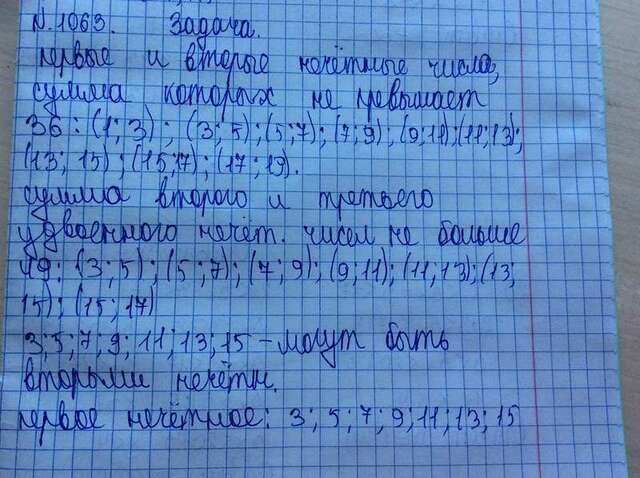 N. 1063. Задача.
первые и вторые нечётные числа,
сумма которых не превышает
36: (1; 3); (3; 5); (5; 7); (7; 9); (9; 11); (11; 13);
(13; 15); (15; 7); (17; 19).
сумма второго и третьего
удвоенного нечёт. чисел не больше
49: (3; 5); (5; 7); (7; 9); (9; 11); (11; 13); (13;
15); (15; 17)
3; 5; 7; 9; 11; 13; 15 - могут быть
вторыми нечётн.
первое нечётное: 3; 5; 7; 9; 11; 13; 15